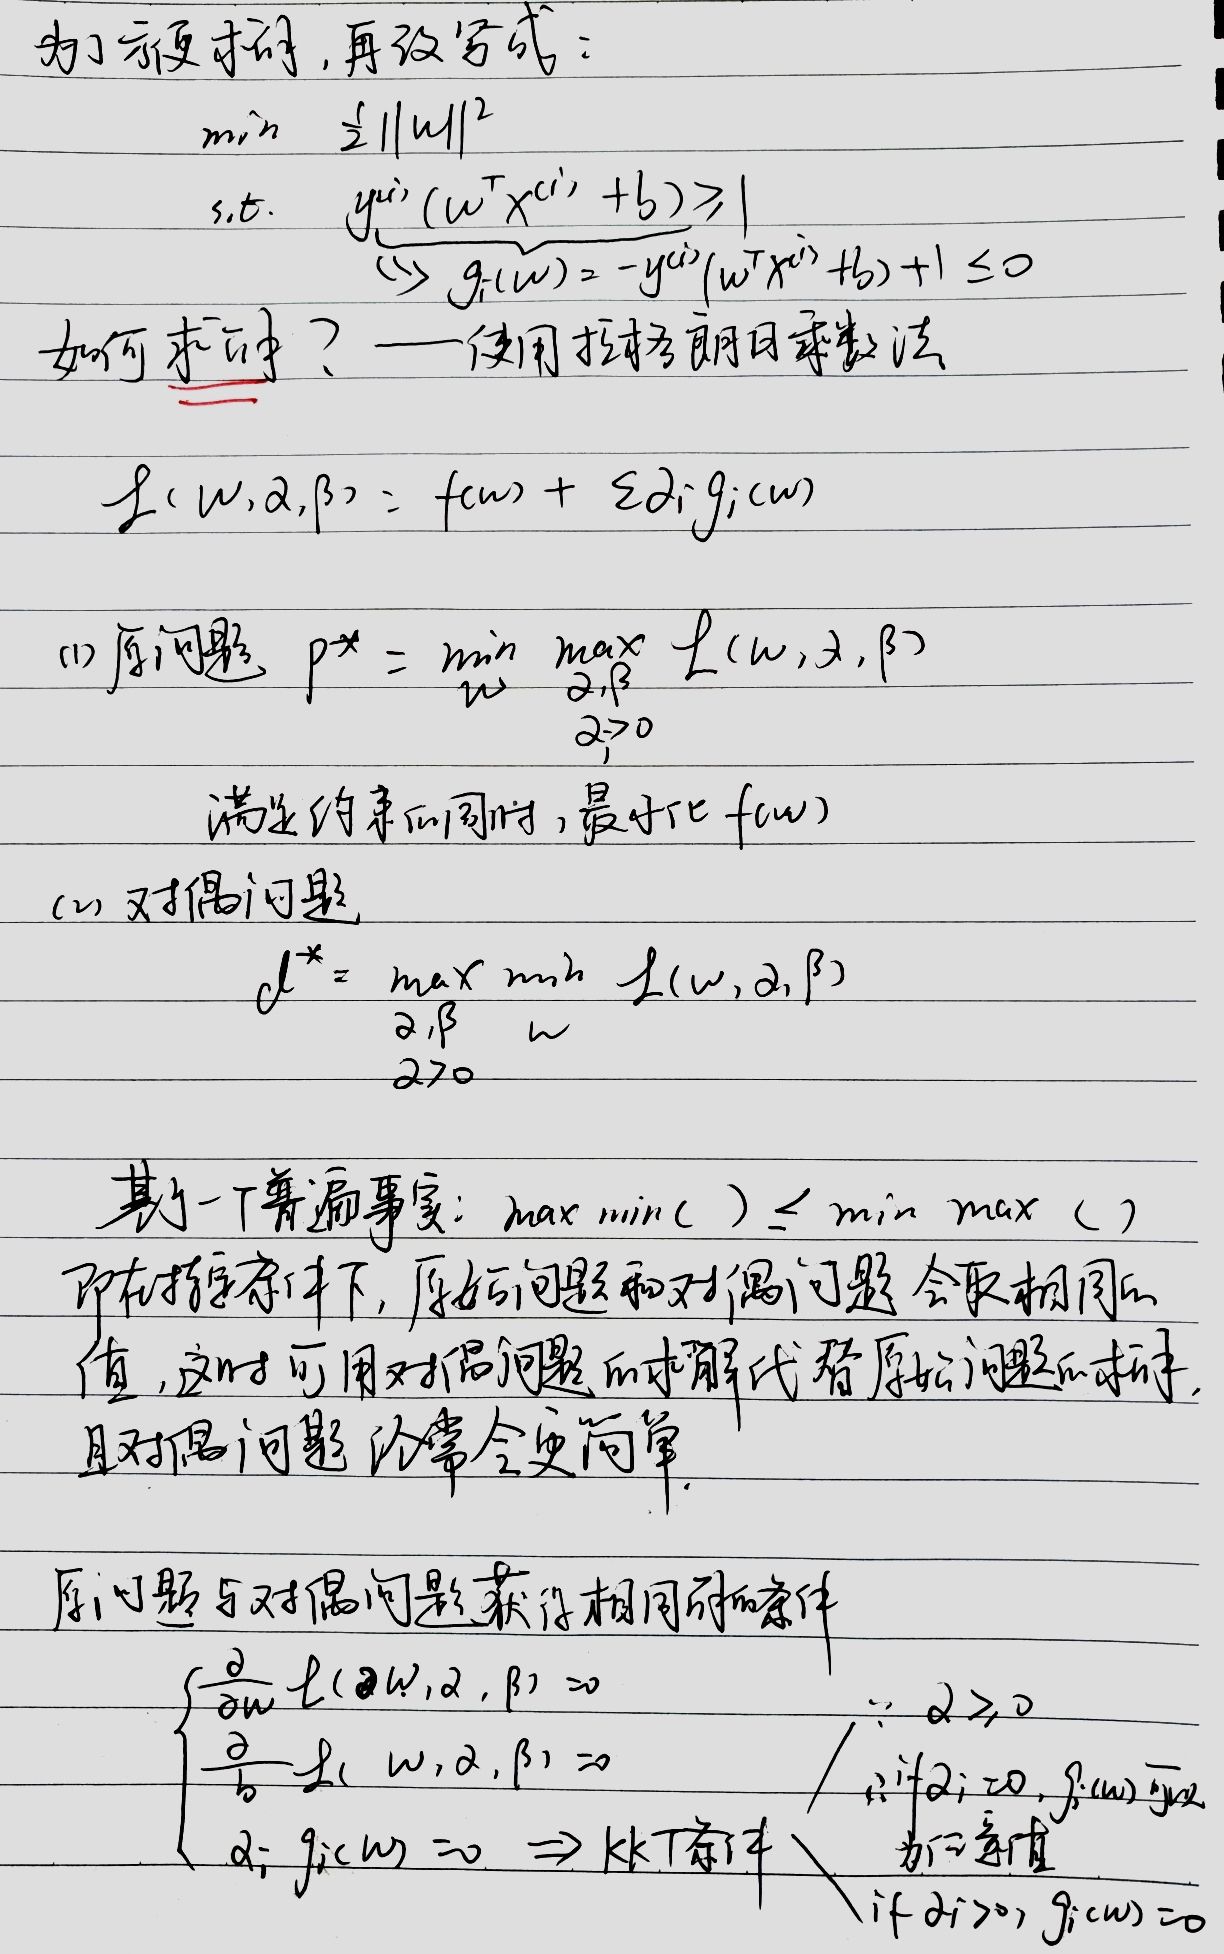 为了方便求解,再改写成:
min ½||w||²
s.t. y⁽ⁱ⁾(wᵀx⁽ⁱ⁾+b)≥1
<=> gᵢ(w)=-y⁽ⁱ⁾(wᵀx⁽ⁱ⁾+b)+1≤0
如何求解?——使用拉格朗日乘数法
L(w,α,β)= f(w)+ Σαᵢgᵢ(w)
(1)原问题 p* = min max L(w,α,β)
w α,β
αᵢ>0
满足约束的同时,最小化f(w)
(2)对偶问题
d* = max min L(w,α,β)
α,β w
α>0
基于一个普遍事实: max min( ) ≤ min max ( )
即在指定条件下,原始问题和对偶问题会取相同的
值,这时可用对偶问题的求解代替原始问题的求解,
且对偶问题通常会更简单.
原问题与对偶问题获得相同解的条件
∂/∂w L(w,α,β)=0
∂/b L(w,α,β)=0
αᵢ gᵢ(w)=0 ⇒ KKT条件
∵ α≥0
∴if αᵢ=0, gᵢ(w)可以
为任意值
if αᵢ>0, gᵢ(w)=0